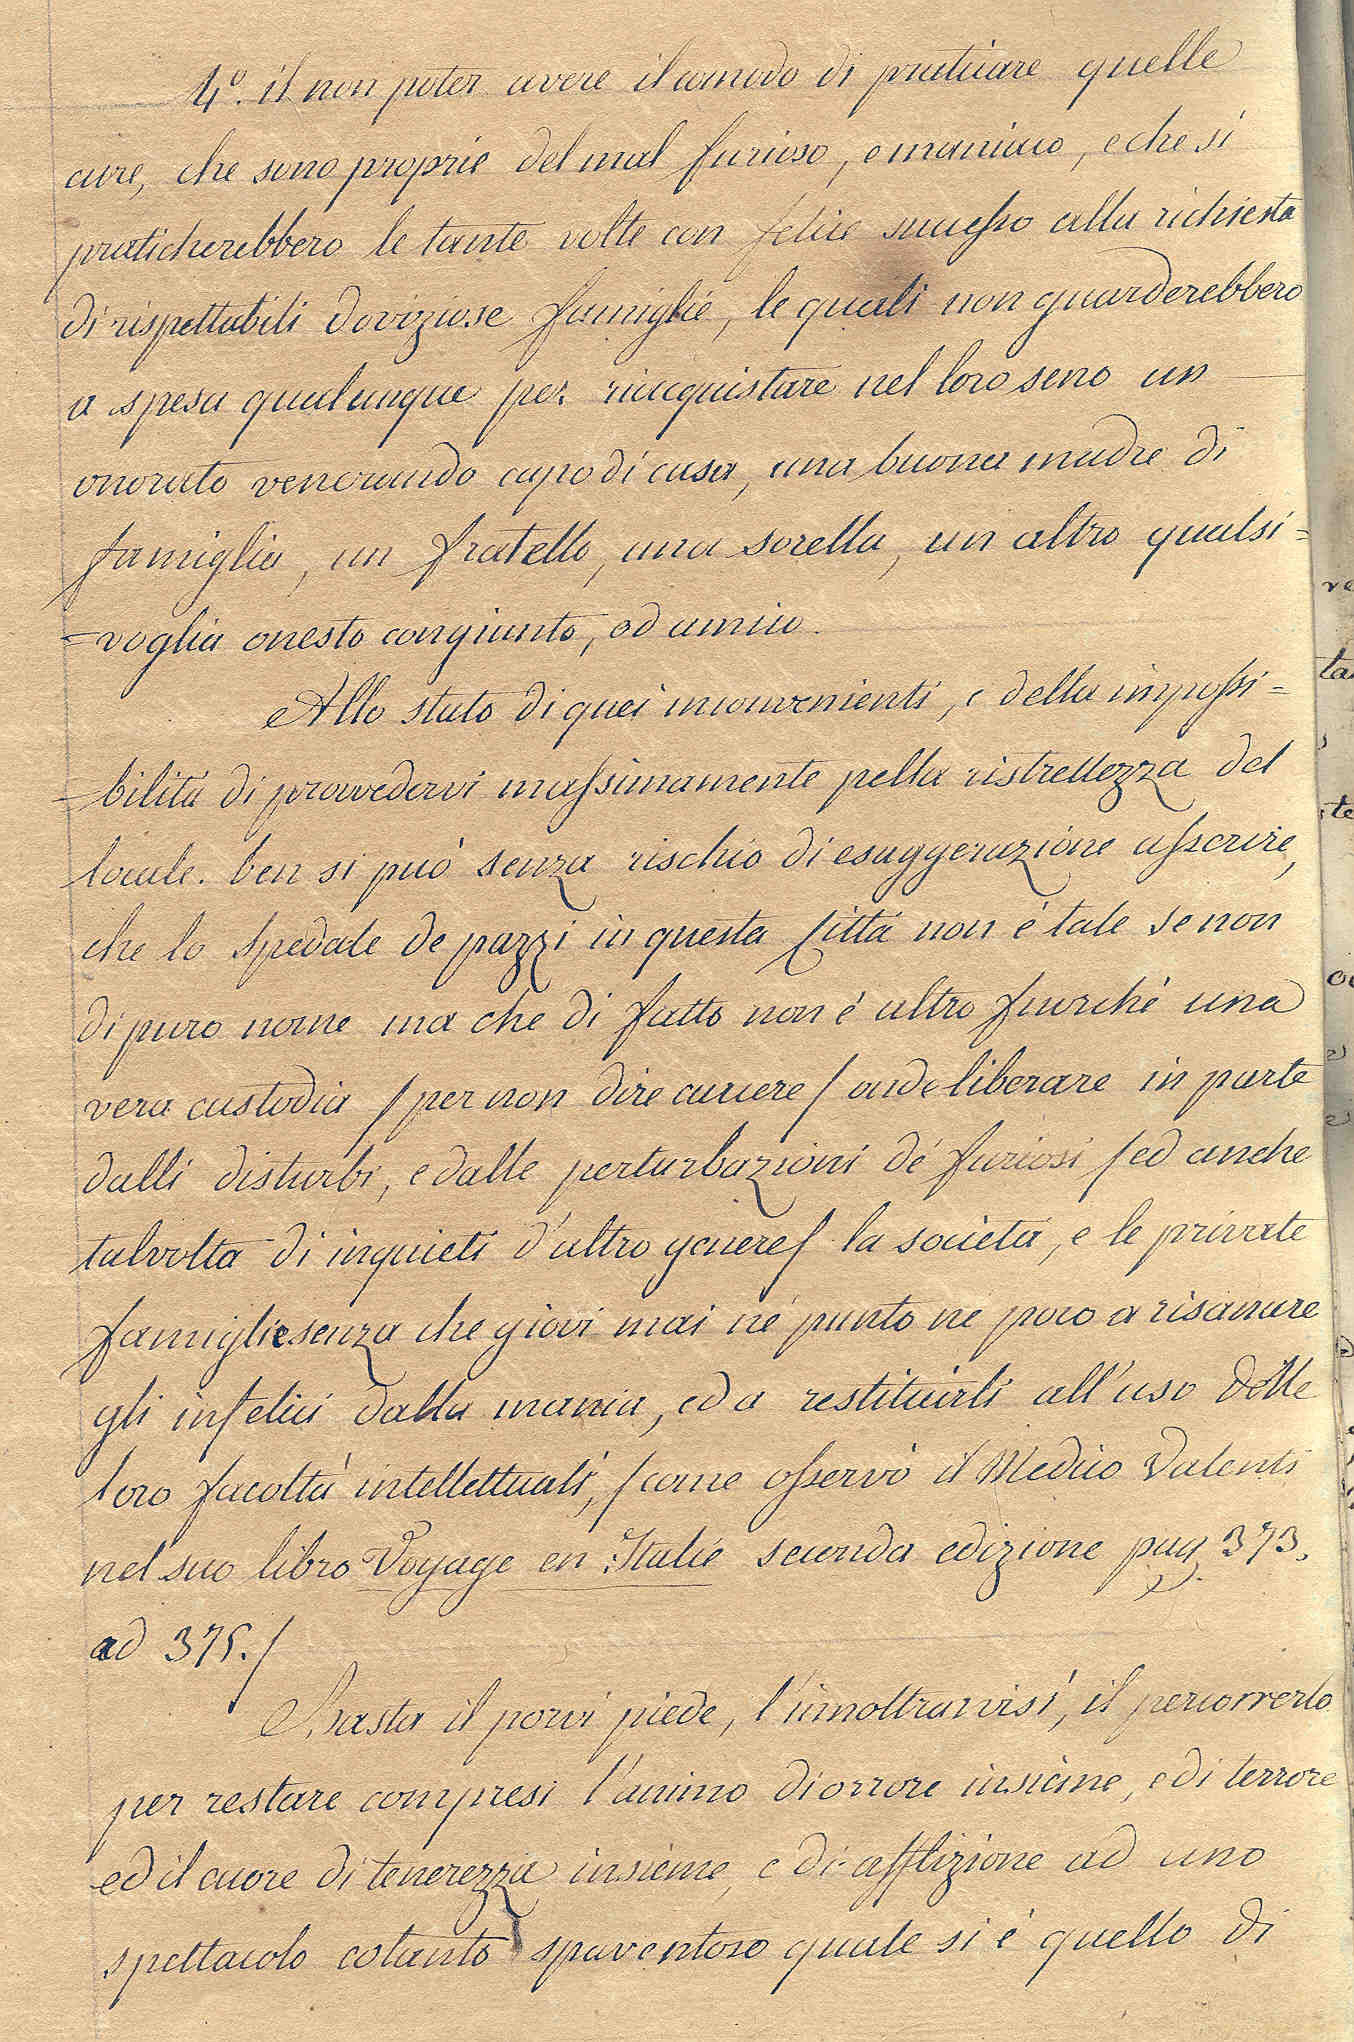 4°. il non poter avere il comodo di praticare quelle
cure, che sono proprie del mal furioso, e maniaco, e che si
praticherebbero le tante volte con felice successo alla richiesta
di rispettabili doviziose famiglie, le quali non guarderebbero
a spesa qualunque per riacquistare nel loro seno un
onorato venerando capo di casa, una buona madre di
famiglia, un fratello, una sorella, un altro qualsi=
=voglia onesto congiunto, od amico.
Allo stato di quei inconvenienti, e della impossi=
=bilità di provvedervi massimamente pella ristrettezza del
locale. ben si può senza rischio di esaggerazione asserire,
che lo spedale de pazzi in questa Città non è tale se non
di puro nome ma che di fatto non è altro fuorchè una
vera custodia / per non dire carcere / onde liberare in parte
dalli disturbi, e dalle perturbazioni de' furiosi / ed anche
talvolta di inquieti d'altro genere / la società, e le private
famiglie senza che giovi mai nè punto nè poco a risanare
gli infelici dalla mania, ed a restituirli all'uso delle
loro facoltà intellettuali, / come osservò il Medico Valenti
nel suo libro Voyage en Italie seconda edizione pag. 373.
ad 375. /
Basta il porvi piede, l'innoltrarvisi, il percorrerlo
per restare compresi l'animo di orrore insieme, e di terrore
ed il cuore di tenerezza insieme, e di afflizione ad uno
spettacolo cotanto spaventoso quale si è quello di